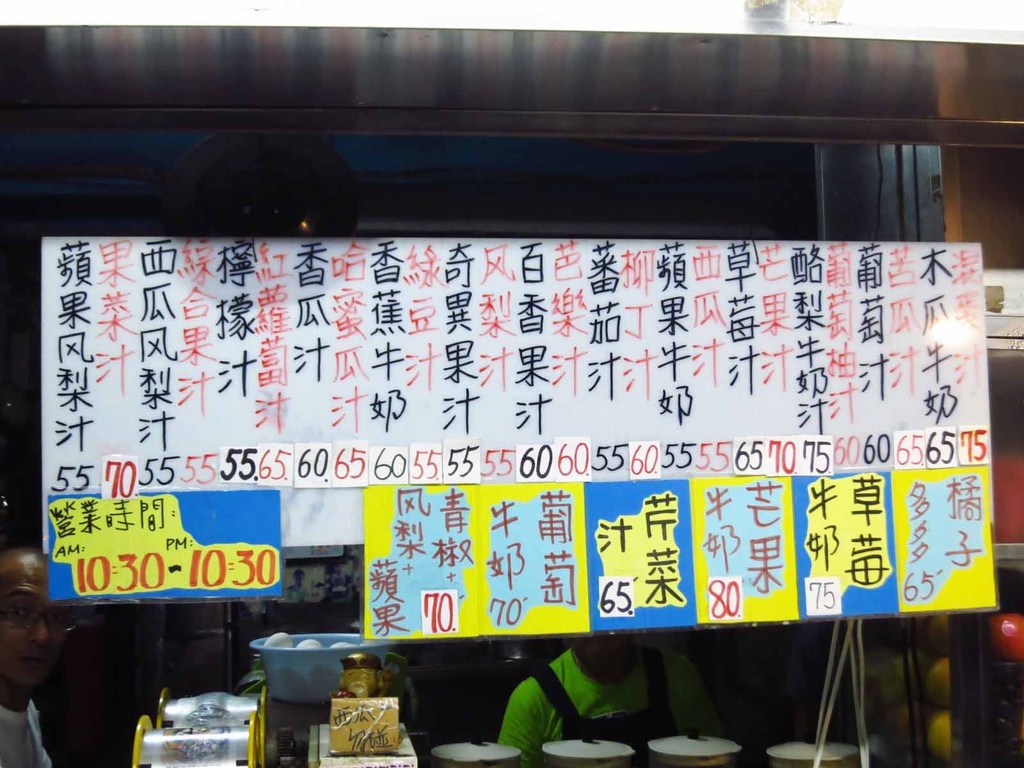 蘋果风梨汁 55
果菜汁 70.
西瓜风梨汁 55
綜合果汁 55
檸檬汁 55.
紅蘿蔔汁 65
香瓜汁 60.
哈蜜瓜汁 65
香蕉牛奶 60
綠豆汁 55
奇異果汁 55
风梨汁 55
百香果汁 60
芭樂汁 60.
蕃茄汁 55
柳丁汁 60.
蘋果牛奶 55
西瓜汁 55
草莓汁 65
芒果汁 70
酪梨牛奶汁 75.
葡萄柚汁 60
葡萄汁 60
苦瓜汁 65
木瓜牛奶 65
汁 75
營業時間:
AM: PM:
10:30~10:30
青椒+
风梨+
蘋果
70.
葡萄
牛奶
70
芹菜
汁
65.
芒果
牛奶
80.
草莓
牛奶
75
橘子
多多
65
西瓜
勿碰